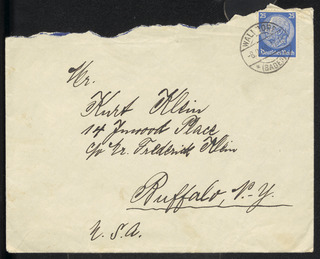 25 25
Deutsches Reich
WALLDORF
(BADEN)
Mr.
Kurt Klein
14 Inwood Place
c/o Mr. Frederick Klein
Buffalo, N.Y.
U.S.A.